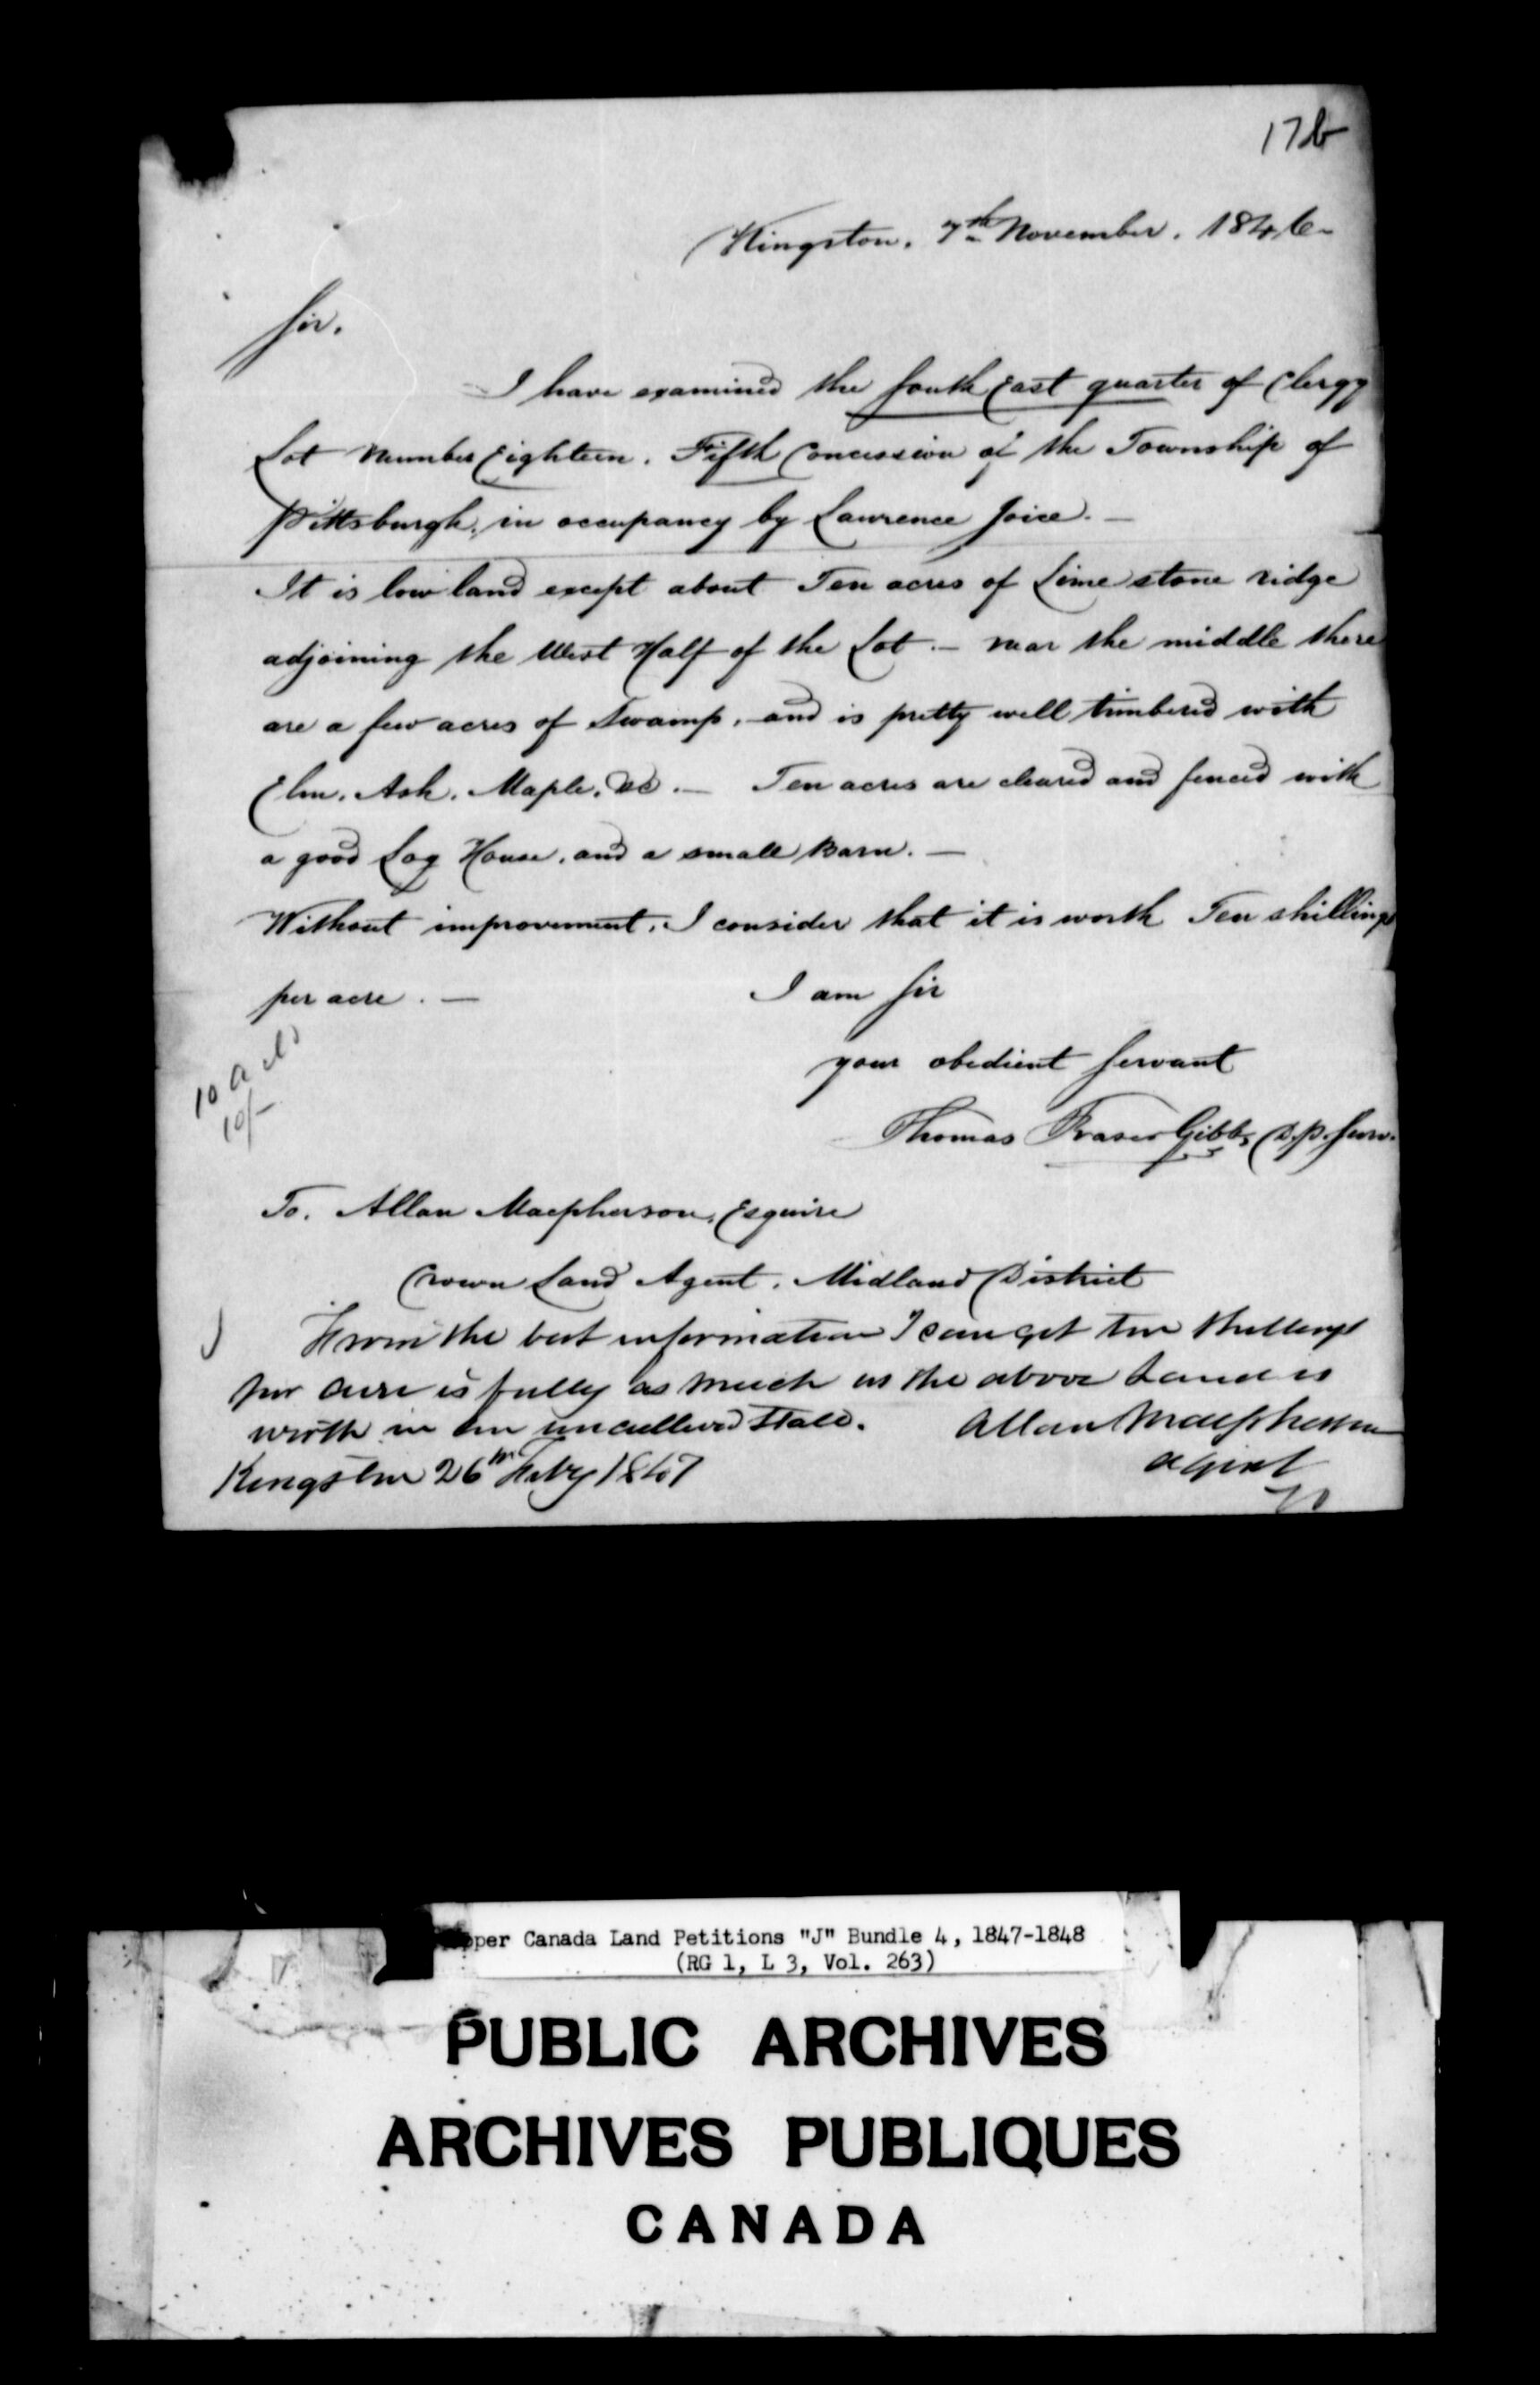 17b
Kingston. 7th November. 1846-
Sir.
I have examined the South East quarter of Clergy
Lot Number Eighteen. Fifth Concession of the Township of
Pittsburgh, in occupancy by Lawrence Joice. —
It is low land except about Ten acres of Lime stone ridge
adjoining the West Half of the Lot. — near the middle there
are a few acres of Swamp, and is pretty well timbered with
Elm. Ash. Maple. &c. — Ten acres are cleared and fenced with
a good Log House, and a small Barn. —
Without improvement, I consider that it is worth Ten shillings
per acre. — I am Sir
10 a
10/-
your obedient Servant
Thomas Fraser Gibbs D.P. Surv.
To. Allan Macpherson, Esquire
Crown Land Agent. Midland District
From the best information I can get ten Shillings
per acre is fully as much as the above Land is
worth in an State. Allan Macpherson
Kingston 26th Feby 1847 agent
PUBLIC ARCHIVES
pper Canada Land Petitions "J" Bundle 4, 1847-1848
(RG 1, L 3, Vol. 263)
ARCHIVES PUBLIQUES
CANADA